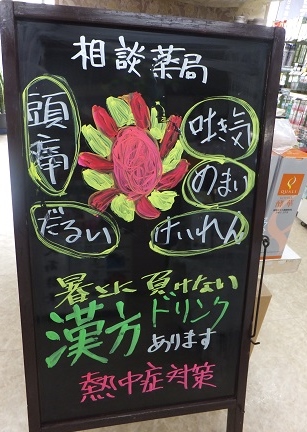 相談薬局
頭痛
吐き気
めまい
だるい
けいれん
暑さに負けない
漢方ドリンク
あります
熱中症対策